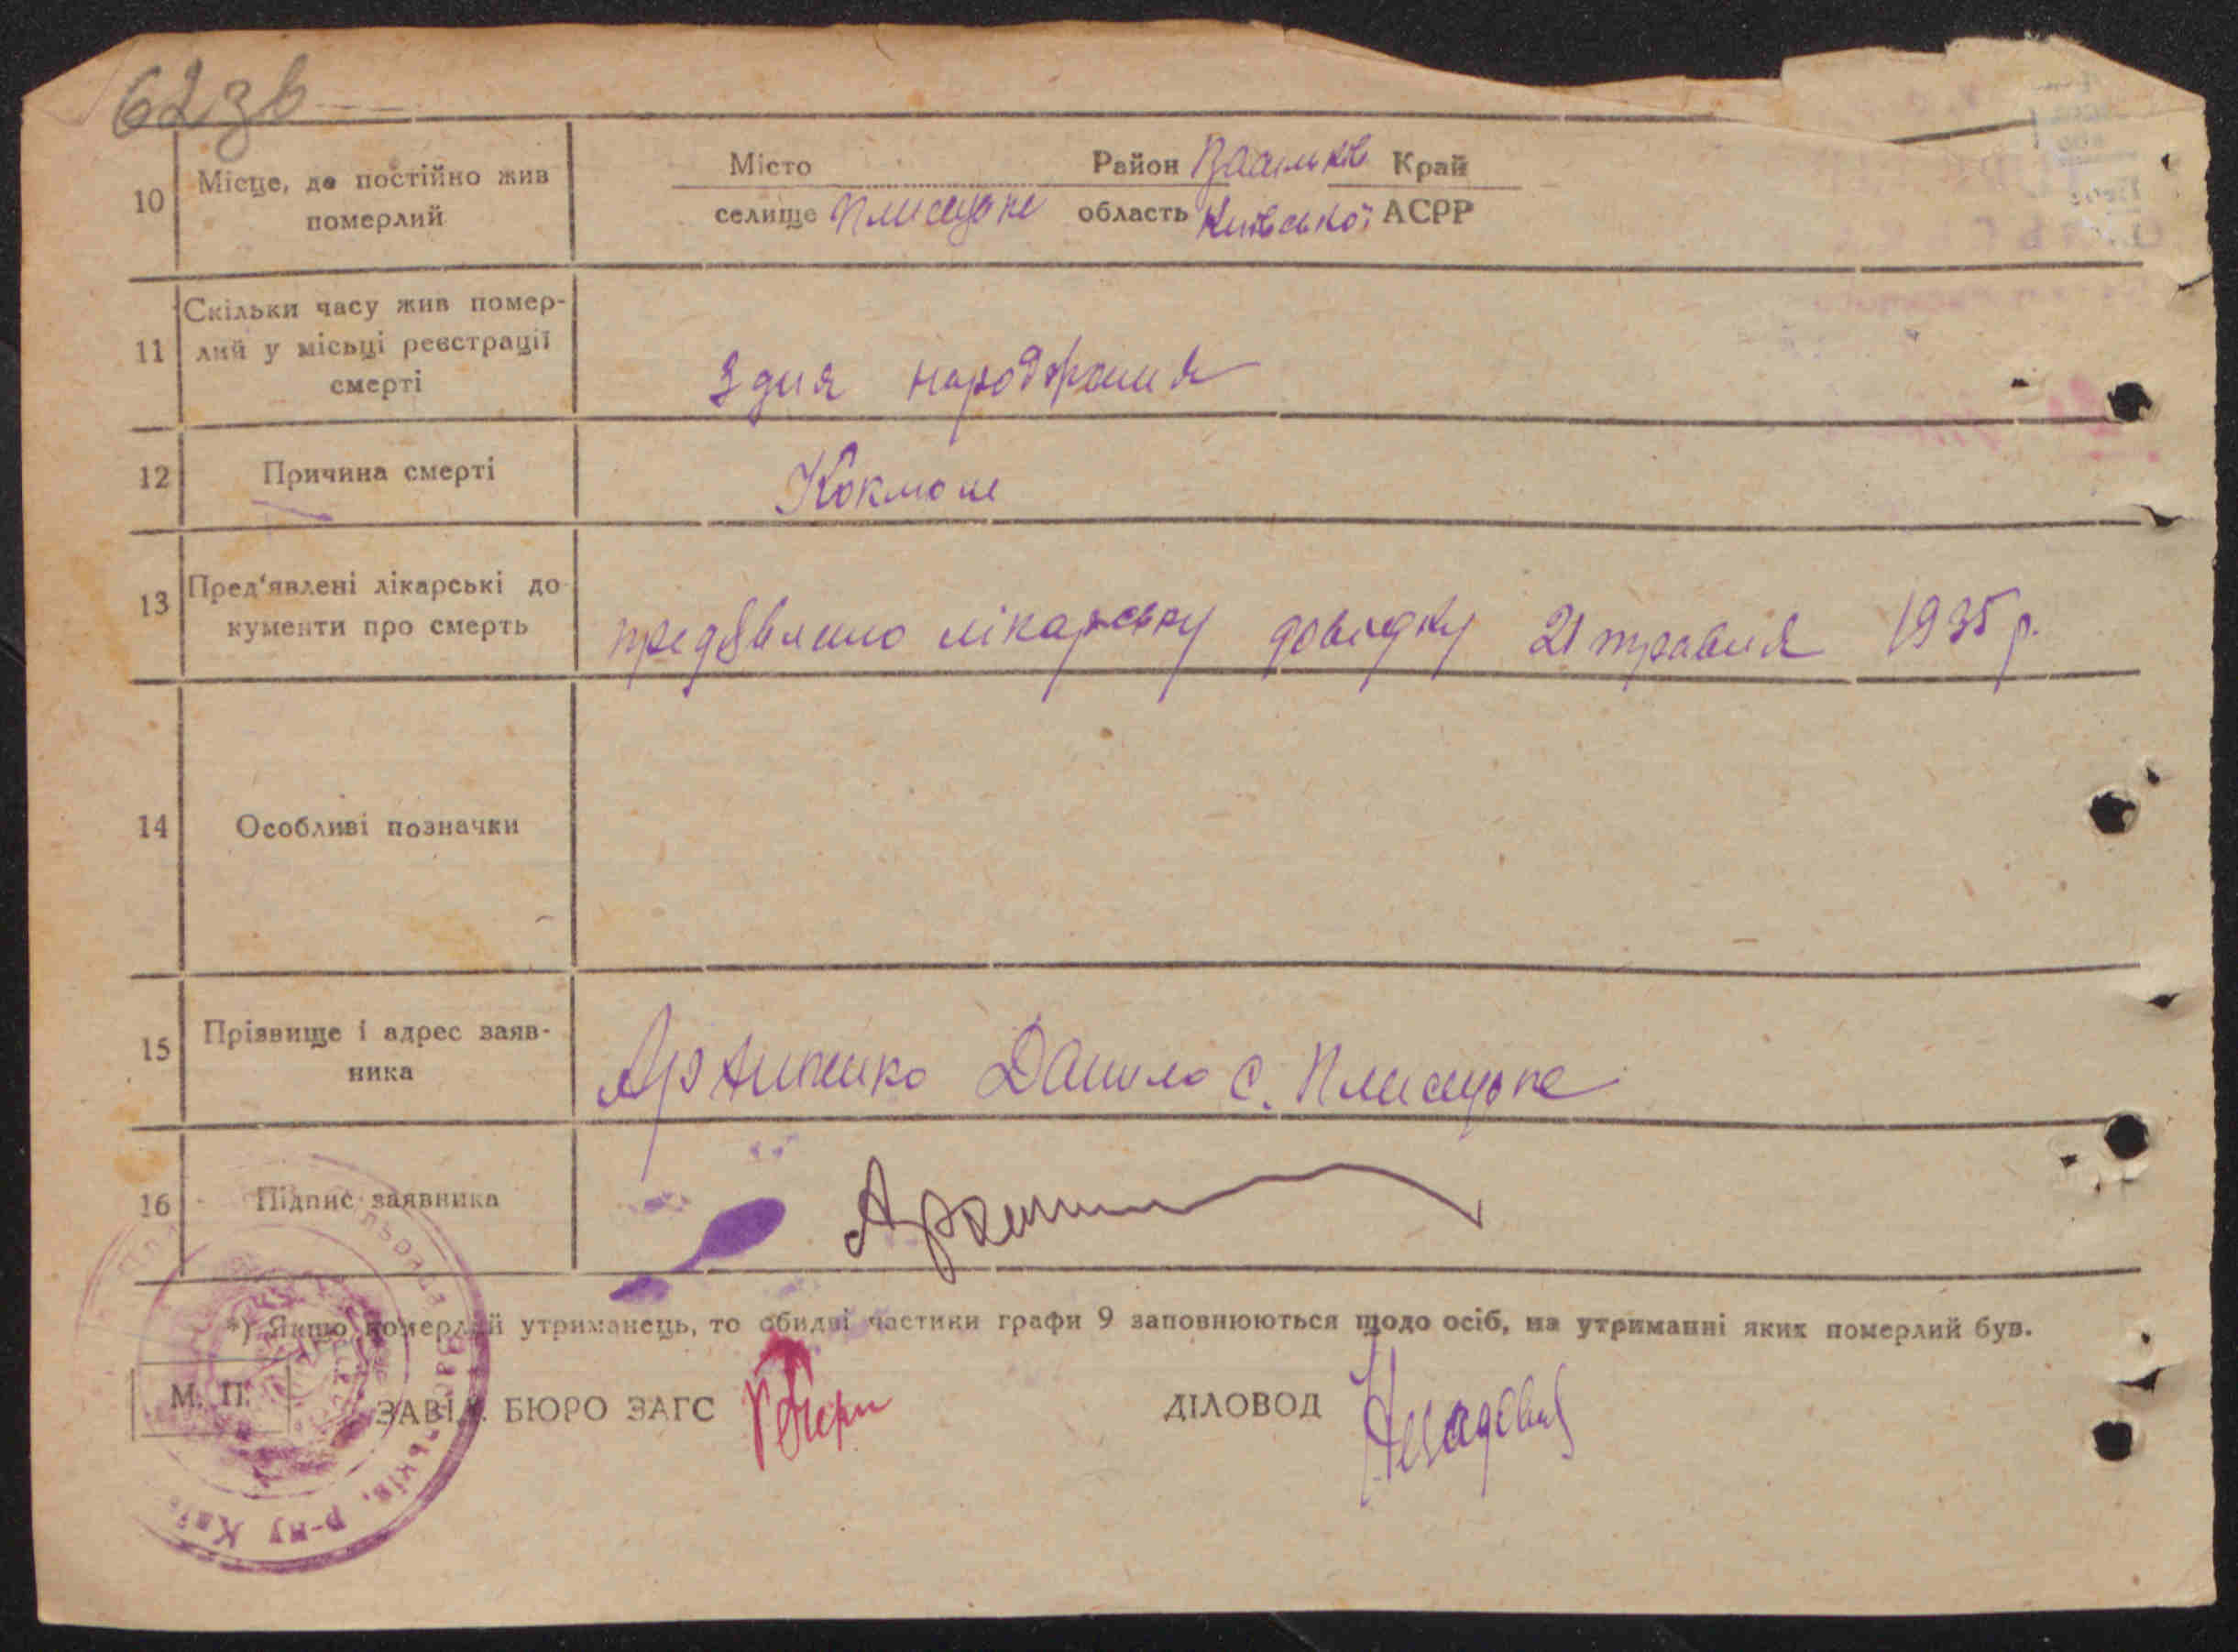 62зв
10 Місце, де постійно жив померлий
Місто Район Васильків Край
селище Плисецьке область Київської АСРР
11 Скільки часу жив помер-
лий у місьці реєстрації
смерті
З дня народження
12 Причина смерті Коклюш
13 Пред‘явлені лікарські до
кументи про смерть
предявлено лікарську довідку 21 травня 1935 р.
14 Особливі позначки
15 Прізвище і адрес заяв-
ника
Архипенко Данило с. Плисецьке
16 Підпис заявника
*) Якщо померлий утриманець, то обидві частини графи 9 заповнюються щодо осіб, на утриманні яких померлий був.
М. П. ЗАВІД. БЮРО ЗАГС ДІЛОВОД
р-ну Киї